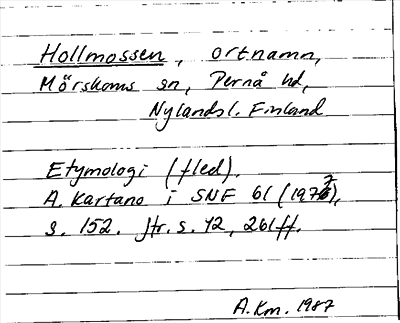 Hollmossen, ortnamn,
Mörskoms sn, Pernå hd,
Nylands l. Finland
Etymologi (fled).
A. Kartano i SNF 61 (1977),
s. 152. Jfr. s. 12, 261 ff.
A.Km. 1987